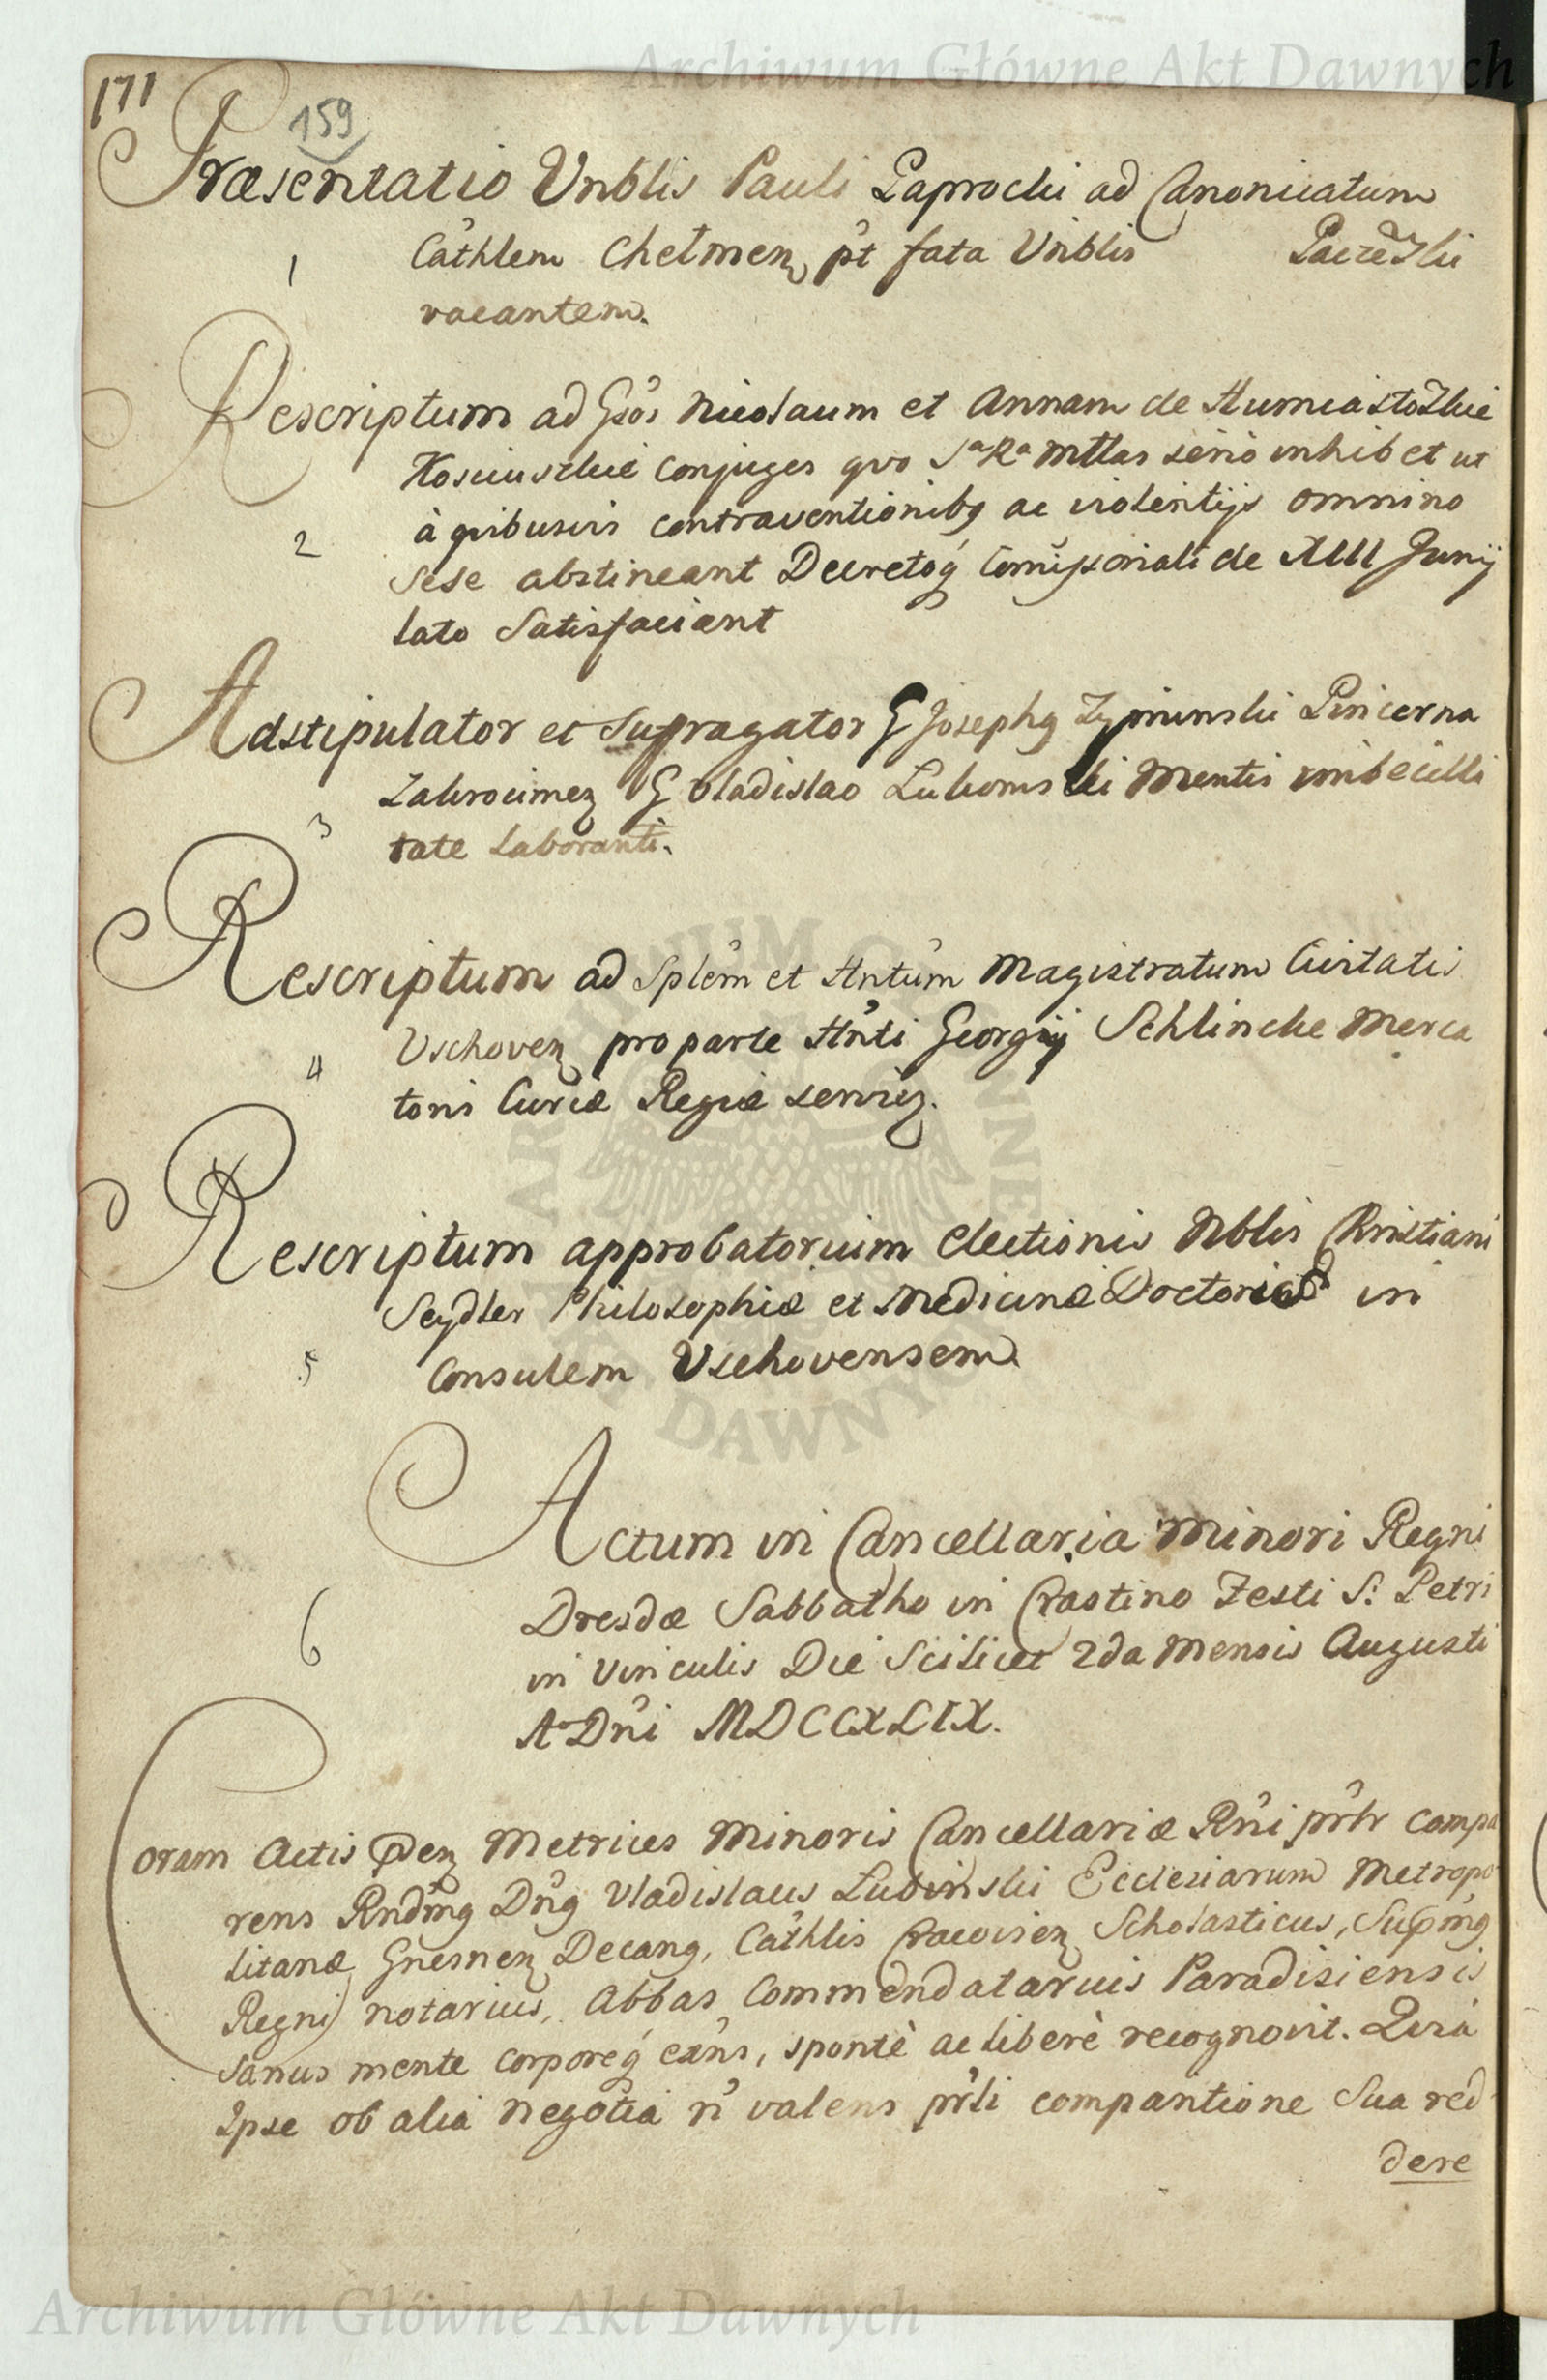 Archiwum Główne Akt Dawnych
171
159
Præsentatio Vnblis Pauli Paprocki ad Canonicatum
1 Cathlem Chelmen pt fata Vnblis
vacantem.
Rescriptum ad Gsos Nicolaum et Annam de Humiastoskie
Kosciuskie conjuges qvo Sa Ra Mttas serio inhibet ut
2 à qvibusvis contraventionibq ac violentijs omnino
sese abstineant Decretoq́ Comissoriali de XIII Junij
lato Satisfaciant
Adstipulator et Sufragator G Josephq Zyminski Pincerna
Zakrocimen G Vladislao Lukomski Mentis imbecilli
3 tate laboranti.
Rescriptum ad Splem et Hntum Magistratum Civitatis
4 Vschoven pro parte Hnti Georgij Schlincke Merca
toris Curiæ Regiæ servien.
Rescriptum approbatorium Electionis Nblis Christiani
Seydler Philosophiæ et Medicinæ Doctoris in
5 Consulem Vschovensem.
Actum in Cancellaria Minori Regni
6 Dresdæ Sabbatho in Crastino Festi S: Petri
in Vinculis Die Scilicet 2da Mensis Augusti
Ao Dni MDCCXLIX.
Coram Actis pden Metrices Minoris Cancellariæ Rni prtr compa
rens Rndmq Dnq Vladislaus Lubinski Ecclesiarum Metropo
litanæ Gnesnen Decanq, Cathlis Cracovien Scholasticus, Supmq
Regni notarius, Abbas Commendatarius Paradisiensis
sanus mente corporeq́ exns, spontè ac liberè recognovit. Qvià
Ipse ob alia negotia n valens prli comparitione Sua red
dere
ARCHIWUM GŁÓWNE AKT DAWNYCH
Archiwum Główne Akt Dawnych